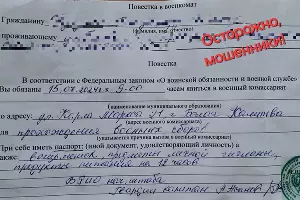 Повестка в военкомат
Гражданину
(фамилия, имя, отчество)
проживающему
Осторожно,
мошенники!
Повестка
В соответствии с Федеральным законом «О воинской обязанности и военной службе»
Вы обязаны 15.07.2024г. 9-00 часам явиться в военный комиссариат
(наименование муниципального образования)
по адресу: ул. Карла Маркса 21 г. Белая Калитва
(адрес военного комиссариата)
для прохождения военных сборов
(указывается причина вызова в военный комиссариат)
При себе иметь паспорт: (иной документ, удостоверяющий личность) а
также предметы личной гигиены,
продукты питания на 12 часов.